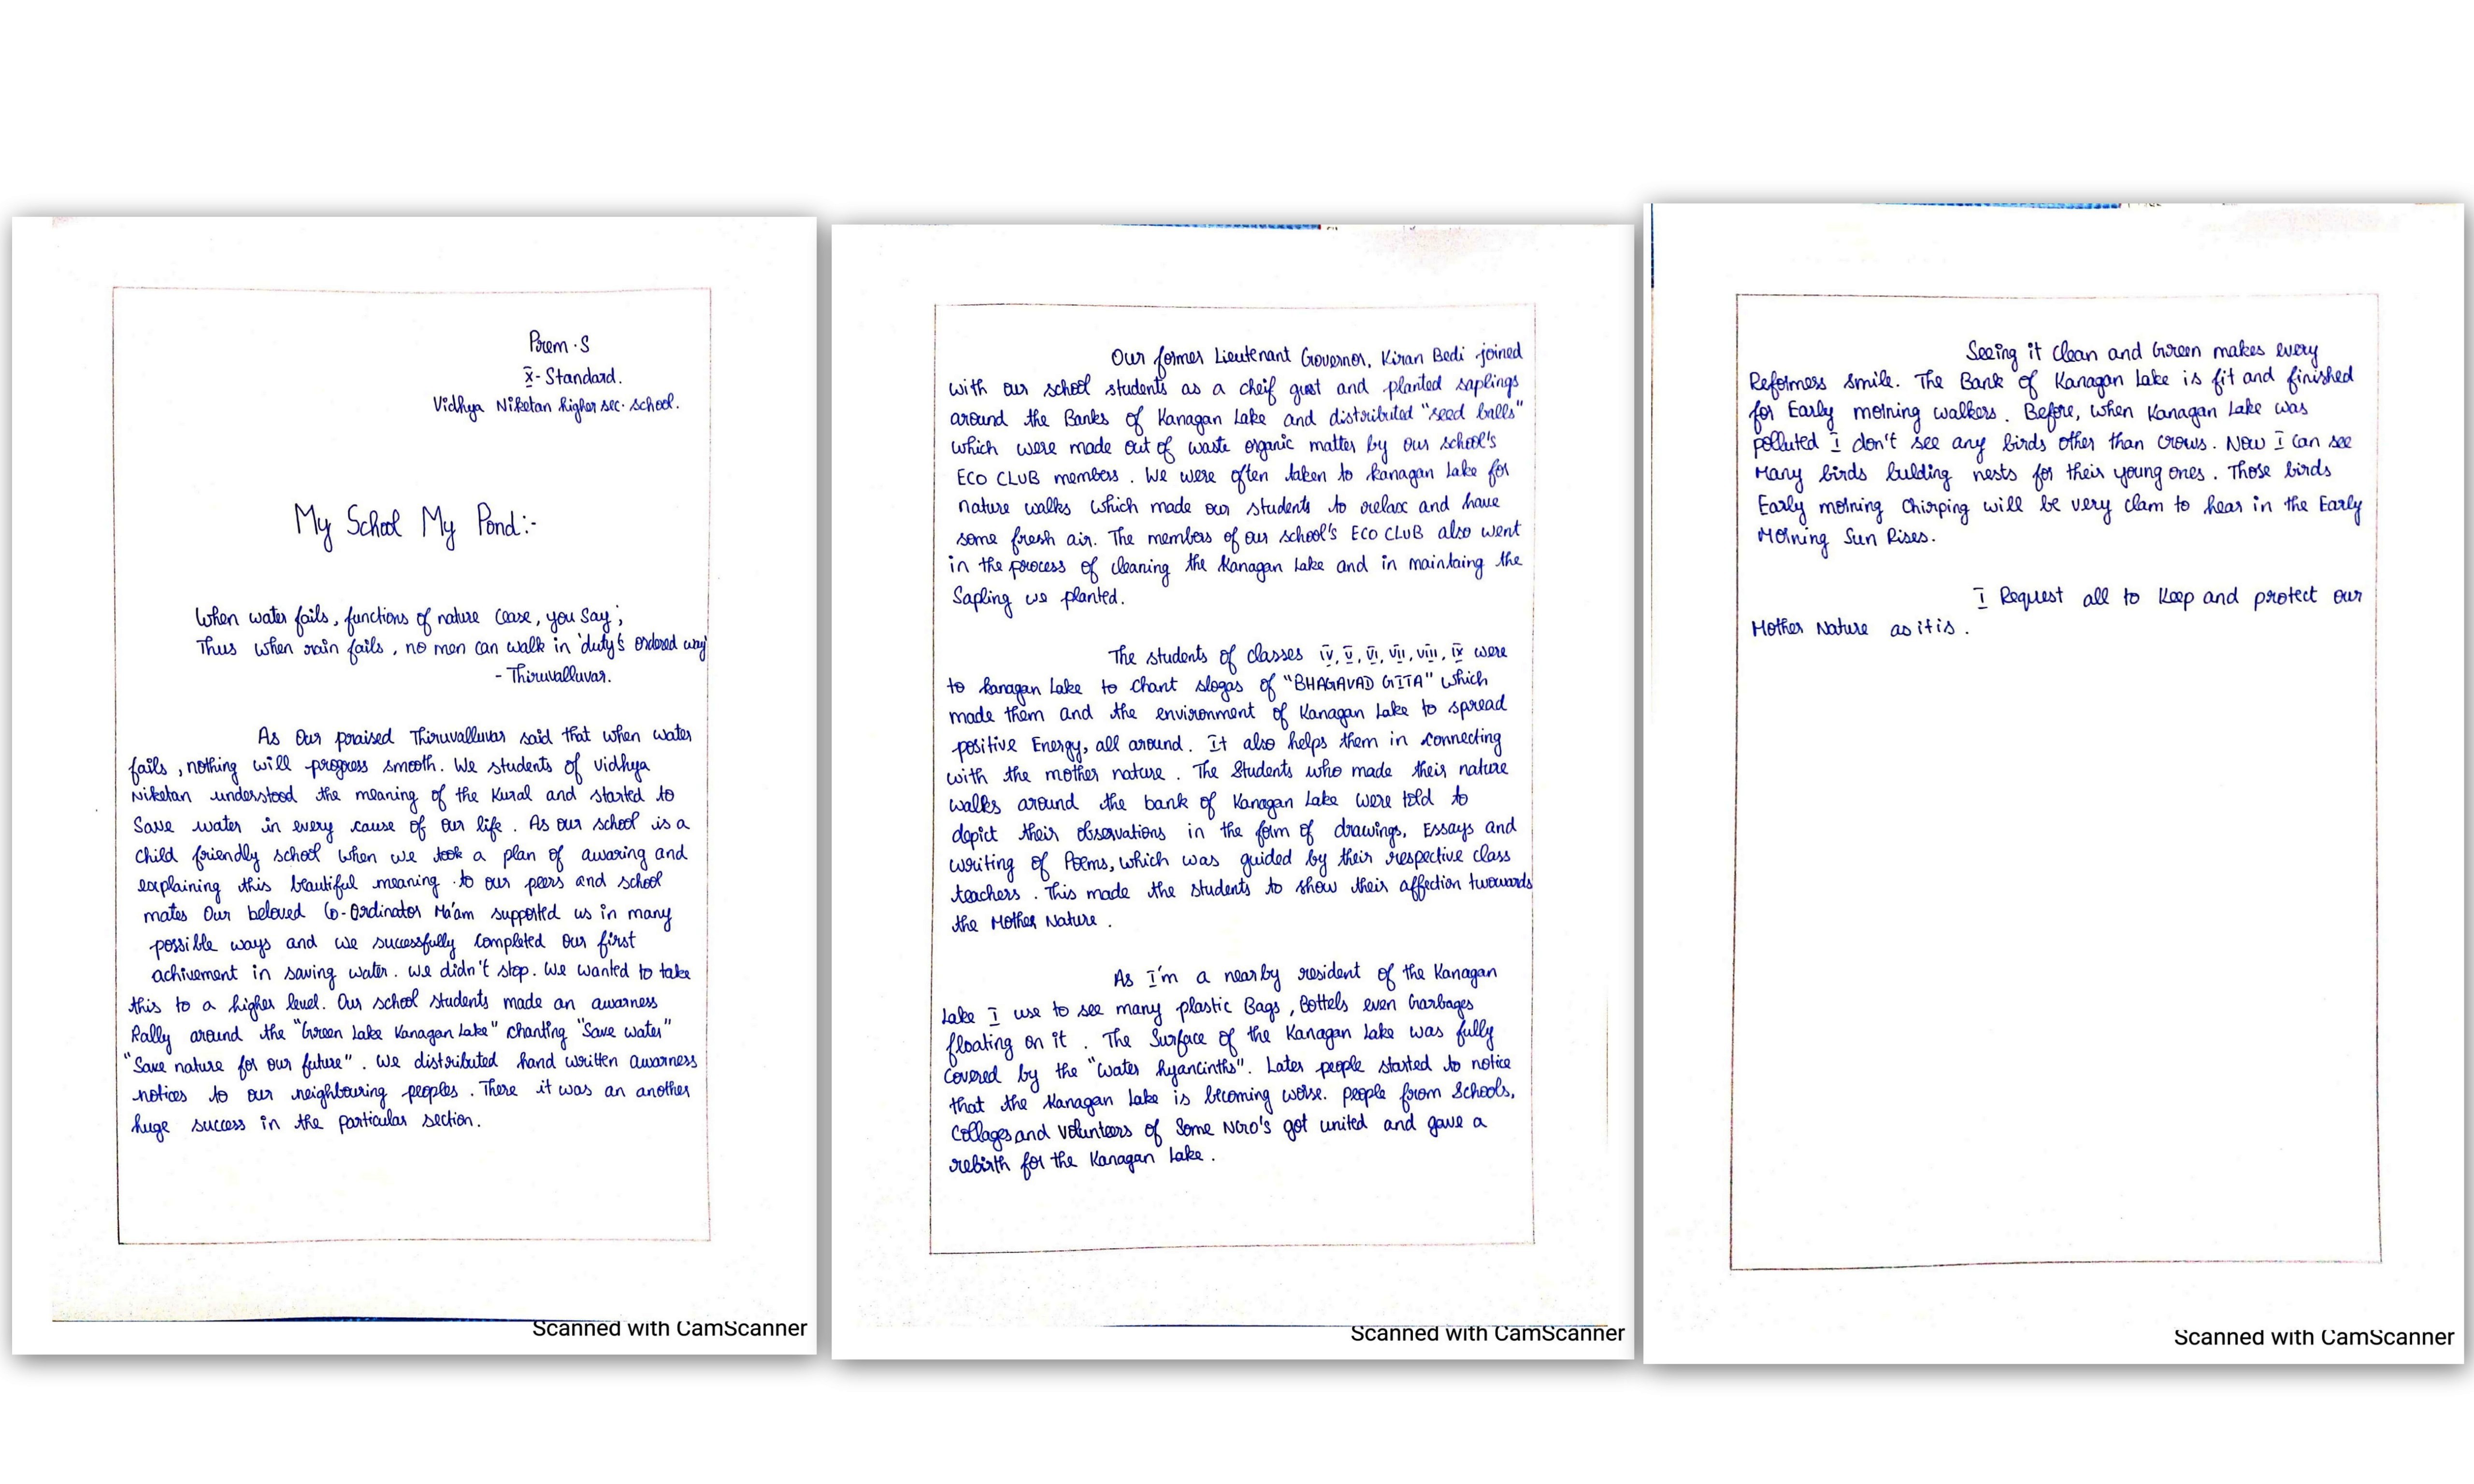 Prem.S
X-Standard.
Vidhya Niketan higher sec. school.
My School My Pond:-
When water fails, functions of nature cease, you say;
Thus when rain fails, no men can walk in 'duty's ordered way'
- Thiruvalluvar.
As Our praised Thiruvalluvar said that when water
fails, nothing will progress smooth. We students of Vidhya
Niketan understood the meaning of the Kural and started to
Save water in every cause of our life. As our school is a
child friendly school when we took a plan of awaring and
explaining this beautiful meaning to our peers and school
mates Our beloved Co-Ordinator Ma'am supported us in many
possible ways and we successfully completed our first
achivement in saving water. We didn't stop. We wanted to take
this to a higher level. Our school students made an awarness
Rally around the "Green Lake Kanagan Lake" chanting "Save water"
"Save nature for our future". We distributed hand written awarness
notices to our neighbouring peoples. There it was an another
huge success in the particular section.
Our former Lieutenant Governor, Kiran Bedi joined
with our school students as a cheif gust and planted saplings
around the Banks of Kanagan Lake and distributed "seed balls"
which were made out of waste organic matter by our school's
ECO CLUB members. We were often taken to Kanagan Lake for
nature walks which made our students to relax and have
some fresh air. The members of our school's ECO CLUB also went
in the process of cleaning the Kanagan Lake and in maintaing the
Sapling we planted.
The students of classes IV, V, VI, VII, VIII, IX were
to Kanagan Lake to chant slogas of "BHAGAVAD GITA" which
made them and the environment of Kanagan Lake to spread
positive Energy, all around. It also helps them in connecting
with the mother nature. The Students who made their nature
walks around the bank of Kanagan Lake were told to
depict their observations in the form of drawings, Essays and
writing of Poems, which was guided by their respective class
teachers. This made the students to show their affection twowards
the Mother Nature.
As I'm a nearby resident of the Kanagan
Lake I use to see many plastic Bags, Bottels even Garbages
floating on it. The Surface of the Kanagan Lake was fully
covered by the "Water hyancinths". Later people started to notice
that the Kanagan Lake is becoming worse. People from Schools,
Collages and Volunteers of Some NGO's got united and gave a
rebirth for the Kanagan Lake.
Seeing it Clean and Green makes every
Reformess smile. The Bank of Kanagan Lake is fit and finished
for Early morning walkers. Before, when Kanagan Lake was
polluted I don't see any birds other than crows. Now I can see
Many birds bulding nests for their young ones. Those birds
Early morning Chirping will be very clam to hear in the Early
Morning Sun Rises.
I Request all to Keep and protect our
Mother Nature as it is.
Scanned with CamScanner
Scanned with CamScanner
Scanned with CamScanner